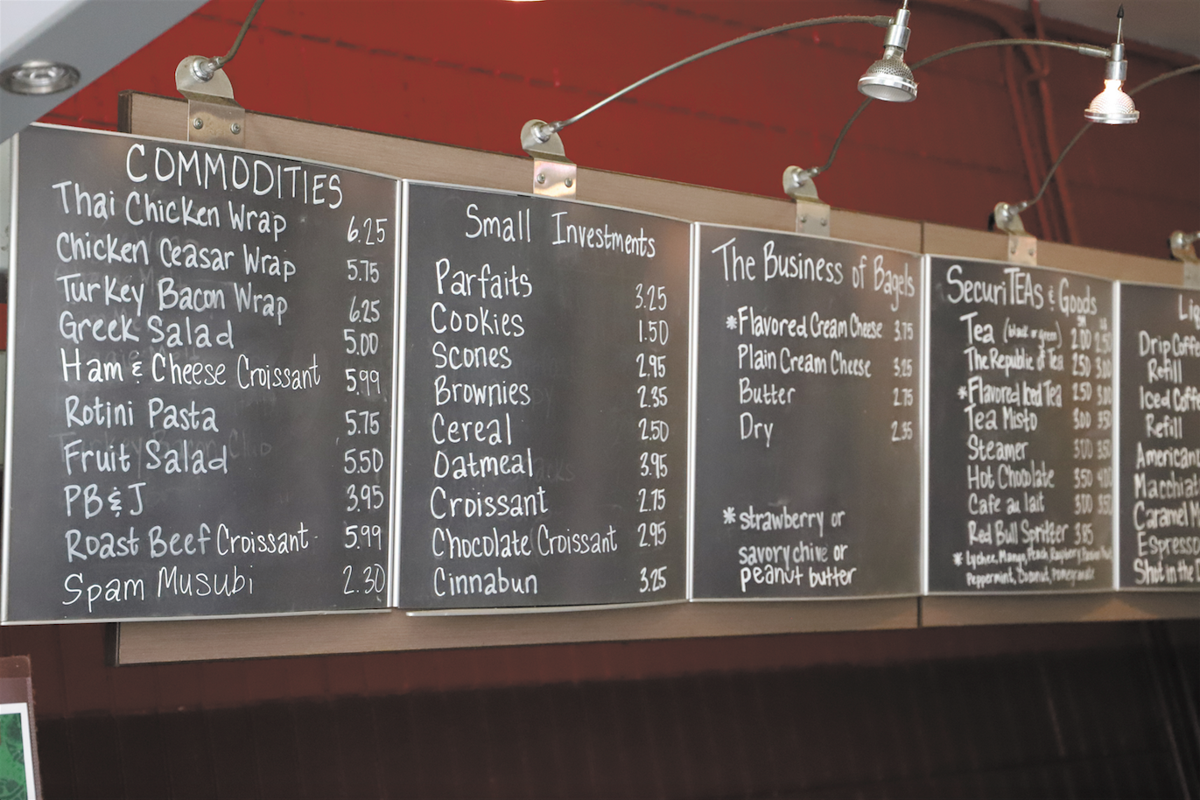 COMMODITIES
Thai Chicken Wrap 6.25
Chicken Ceasar Wrap 5.75
Turkey Bacon Wrap 6.25
Greek Salad 5.00
Ham & Cheese Croissant 5.99
Rotini Pasta 5.75
Fruit Salad 5.50
PB & J 3.95
Roast Beef Croissant 5.99
Spam Musubi 2.30
Small Investments
Parfaits 3.25
Cookies 1.50
Scones 2.95
Brownies 2.35
Cereal 2.50
Oatmeal 3.95
Croissant 2.75
Chocolate Croissant 2.95
Cinnabun 3.25
The Business of Bagels
*Flavored Cream Cheese 3.75
Plain Cream Cheese 3.25
Butter 2.75
Dry 2.35
* strawberry or
savory chive or
peanut butter
SecuriTEAs & Goods
Tea (black or green) 2.00 2.50
The Republic of Tea 2.50 3.00
*Flavored Iced Tea 2.50 3.00
Tea Misto 3.00 3.50
Steamer 3.00 3.50
Hot Chocolate 3.50 4.00
Cafe au lait 3.00 3.50
Red Bull Spritzer 3.85
* Lychee, Mango, Peach, Raspberry, Passion
Peppermint, Coconut, Pomegranate
Drip Coffe
Refill
Iced Coff
Refill
American
Macchia
Caramel
Espress
Shot in the